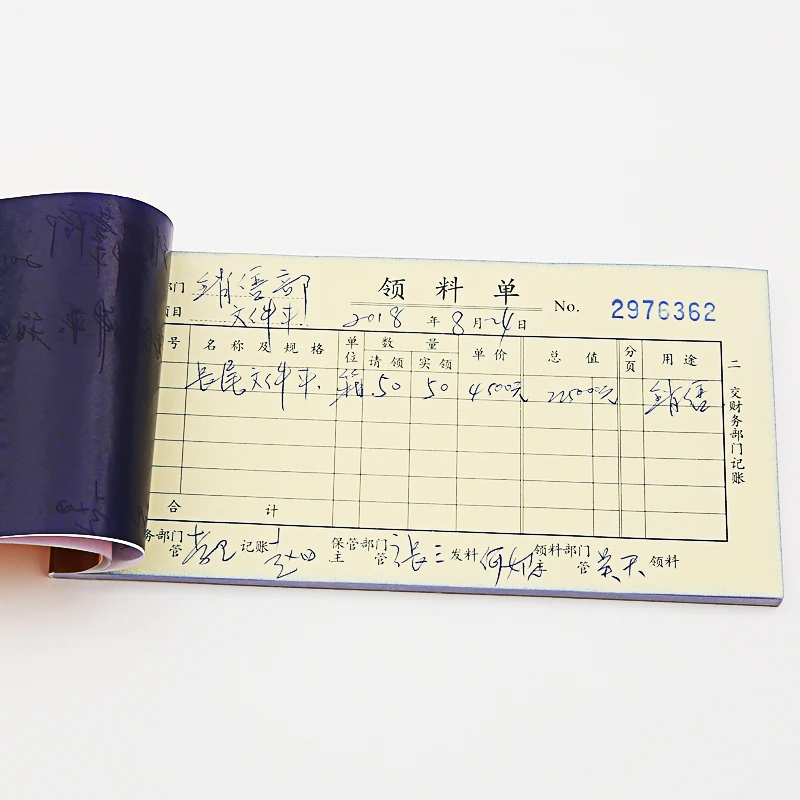 部门 销售部 领料单 No. 2976362
项目 文件夹 2018年8月24日
号 名称及规格 单位 数量 请领 实领 单价 总值 分页 用途
长尾文件夹. 箱 50 50 4500元 225000元 销售
合计
务部门主管 记账 保管部门主管 张三 发料 领料部门主管 领料
二 交财务部门记账